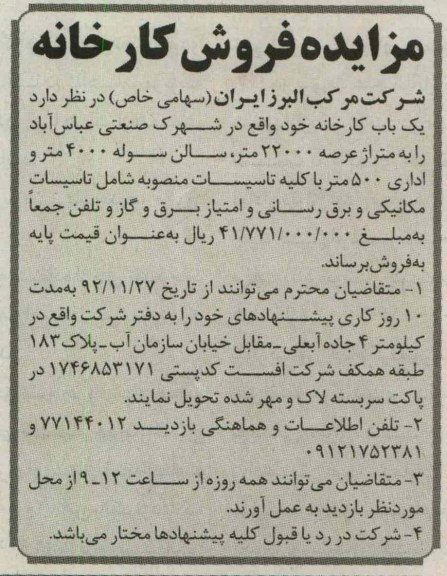 مزایده فروش کارخانه
شرکت مرکب البرز ایران (سهامی خاص) در نظر دارد
یک باب کارخانه خود واقع در شهرک صنعتی عباس‌آباد
را به متراژ عرصه ۲۲۰۰۰ متر، سالن سوله ۴۰۰۰ متر و
اداری ۵۰۰ متر با کلیه تاسیسات منصوبه شامل تاسیسات
مکانیکی و برق رسانی و امتیاز برق و گاز و تلفن جمعاً
به‌مبلغ ۴۱/۷۷۱/۰۰۰/۰۰۰ ریال به‌عنوان قیمت پایه
به‌فروش برساند.
۱- متقاضیان محترم می‌توانند از تاریخ ۹۲/۱۱/۲۷ به‌مدت
۱۰ روز کاری پیشنهادهای خود را به دفتر شرکت واقع در
کیلومتر ۴ جاده آبعلی ـ مقابل خیابان سازمان آب ـ پلاک ۱۸۳
طبقه همکف شرکت افست کدپستی ۱۷۴۶۸۵۳۱۷۱ در
پاکت سربسته لاک و مهر شده تحویل نمایند.
۲- تلفن اطلاعات و هماهنگی بازدید ۷۷۱۴۴۰۱۲ و
۰۹۱۲۱۷۵۲۳۸۱
۳- متقاضیان می‌توانند همه روزه از ساعت ۱۲ـ۹ از محل
موردنظر بازدید به عمل آورند.
۴- شرکت در رد یا قبول کلیه پیشنهادها مختار می‌باشد.